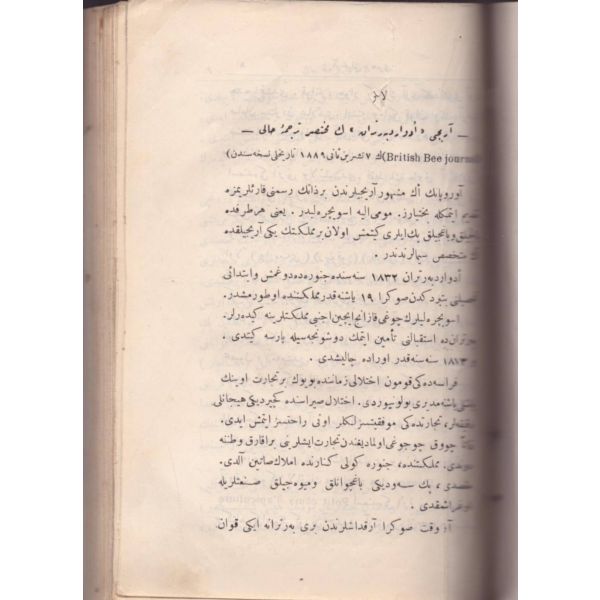 — آریجی « ادوارد برتران » ك مختصر ترجمهٔ حالی —
(British Bee journal ك ٧ تشرین ثانی ١٨٨٩ تاریخلی نسخه سندن)
آوروپانك اك مشهور آریجیلرندن بر ذاتك رسمنی قارئلریمزه
ایتمكله بختیارز. مومی الیه اسویچره لیدر. یعنی هر طرفده
و باغجیلق پك ایلری كیتمش اولان بر مملكتك یكی آریجیلقده
متخصص سیمالرندندر.
ادوارد برتران ١٨٣٢ سنه سنده جنوره ده دوغمش و ابتدائی
بیتیردكدن صوكرا ١٩ یاشنه قدر مملكتنده اوطورمشدر.
اسویچره لیلرك چوغی قازانج ایچین اجنبی مملكتلرینه كیده رلر.
برتران ده استقبالنی تأمین ایتمك دوشونجه سیله پارسه كیتدی.
١٨١٣ سنه سنه قدر اوراده چالیشدی.
فرانسه ده كی قومون اختلالی زماننده بویوك بر تجارت اوینك
باشنه مدیری بولونیوردی. اختلال صیراسنده كچیردیكی هیجانلی
تجارتده كی موفقیتسزلكلر اونی راحتسز ایتمش ایدی.
چوجوق چوجوغی اولمادیغندن تجارت ایشلرینی براقارق وطننه
مملكتنده، جنوره كولی كنارنده املاك صاتین آلدی.
پك سه ودیكی باغچوانلق و میوه جیلق صنعتلریله
اوغراشمقدی.
آز وقت صوكرا آرقداشلرندن بری به رترانه ایكی قوان